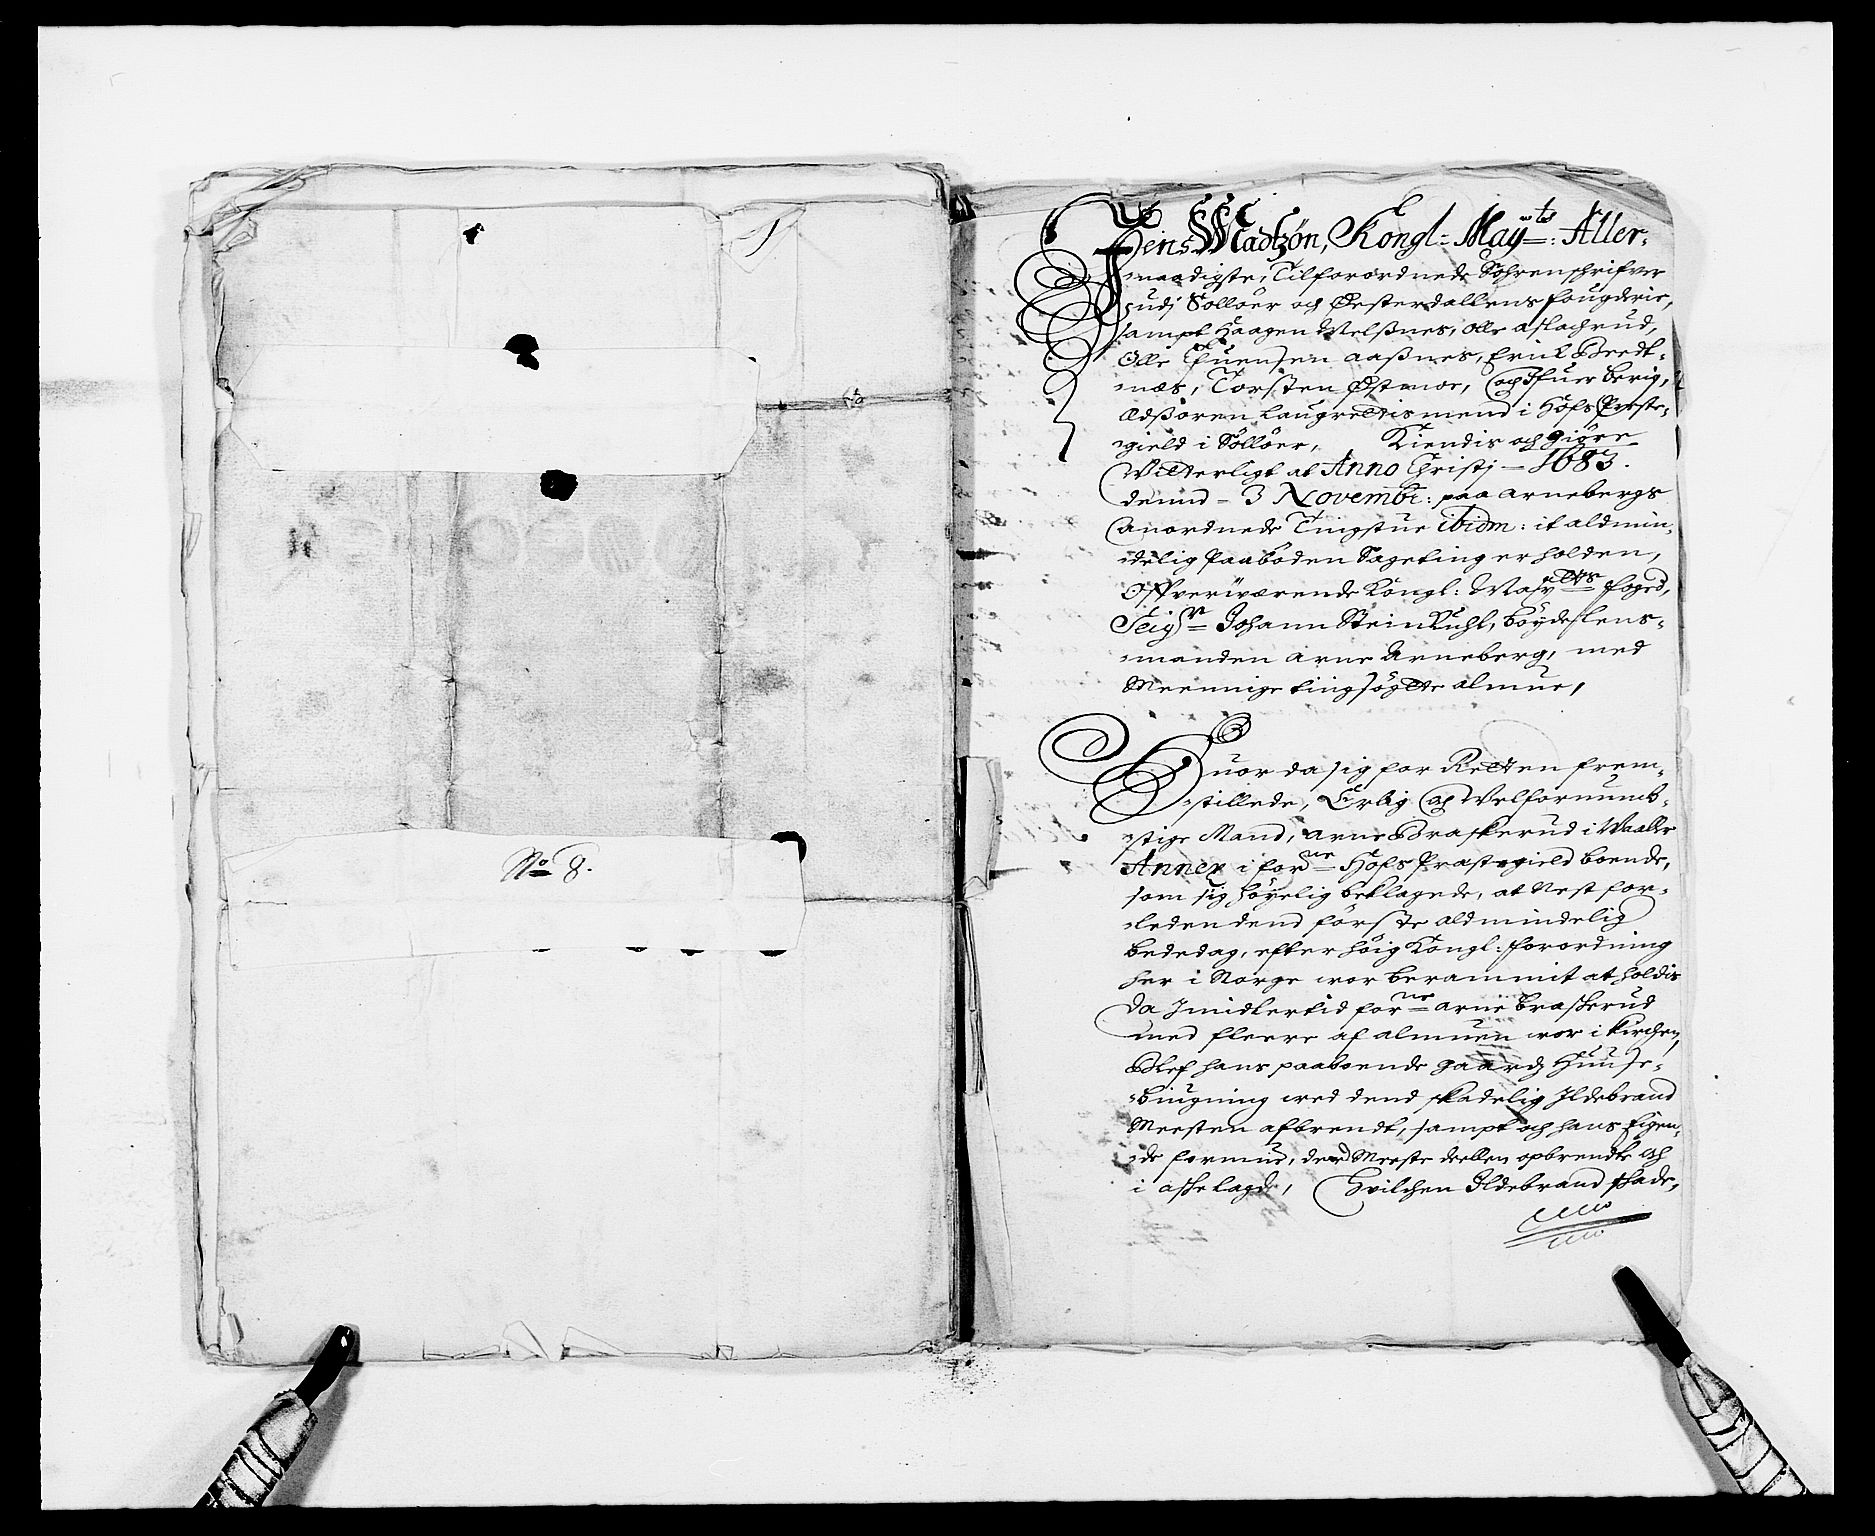 No 8.
Jens Madtzøn, Kongl: Mayts: Aller:
naadigste, Tilforordnede Sohrenschrifver
udj Solløer och Østerdallens fougderie,
sampt Haagen Welßnes, Olle Aslachrud,
Olle Ifuersen aaßnes, Erick Bredt-
næs, Torsten Østmoe, och Ifuer berig,
Edßoren Laugrettis mend i Hofs Preste-
gield i Solløer, Kiendis och giøre
Witterligt at Anno Christj - 1683.
dennd - 3 Novembr: paa Arnebergs
anordnede Tingstue ibidm: it aldmin-
delig Paabøden Sageting er holden,
Offverwærende Kongl: Mayttz foged,
Seigr Johann SteinKuhl, bøydeslens-
manden Arne Arneberg, med
Meennige tingsøgtte almue,
Huor da sig for Retten frem-
stillede, Erlig och Welfornumb-
stige Mand, Arne Braskerud i Waaller
Annex i forne Hofs Prestegield boende,
som sig høyelig beklagede, at Nest for-
leden dend første aldmindelig
bededag, efter høig Kongl: forordning
her i Norge wor berammit at holdis
da Imidlertid forne Arne braskerud
med fleere af almuen wor i kirchen,
Blef hans paaboende gaards Huuse-
biugning wed dend skadelig Ildebrand
Meesten afbrendt, sampt och hans Eigen-
de formue, dend Meeste deellen opbrendte och
i Aske lagde, Hvilchen Ildebrand skade,